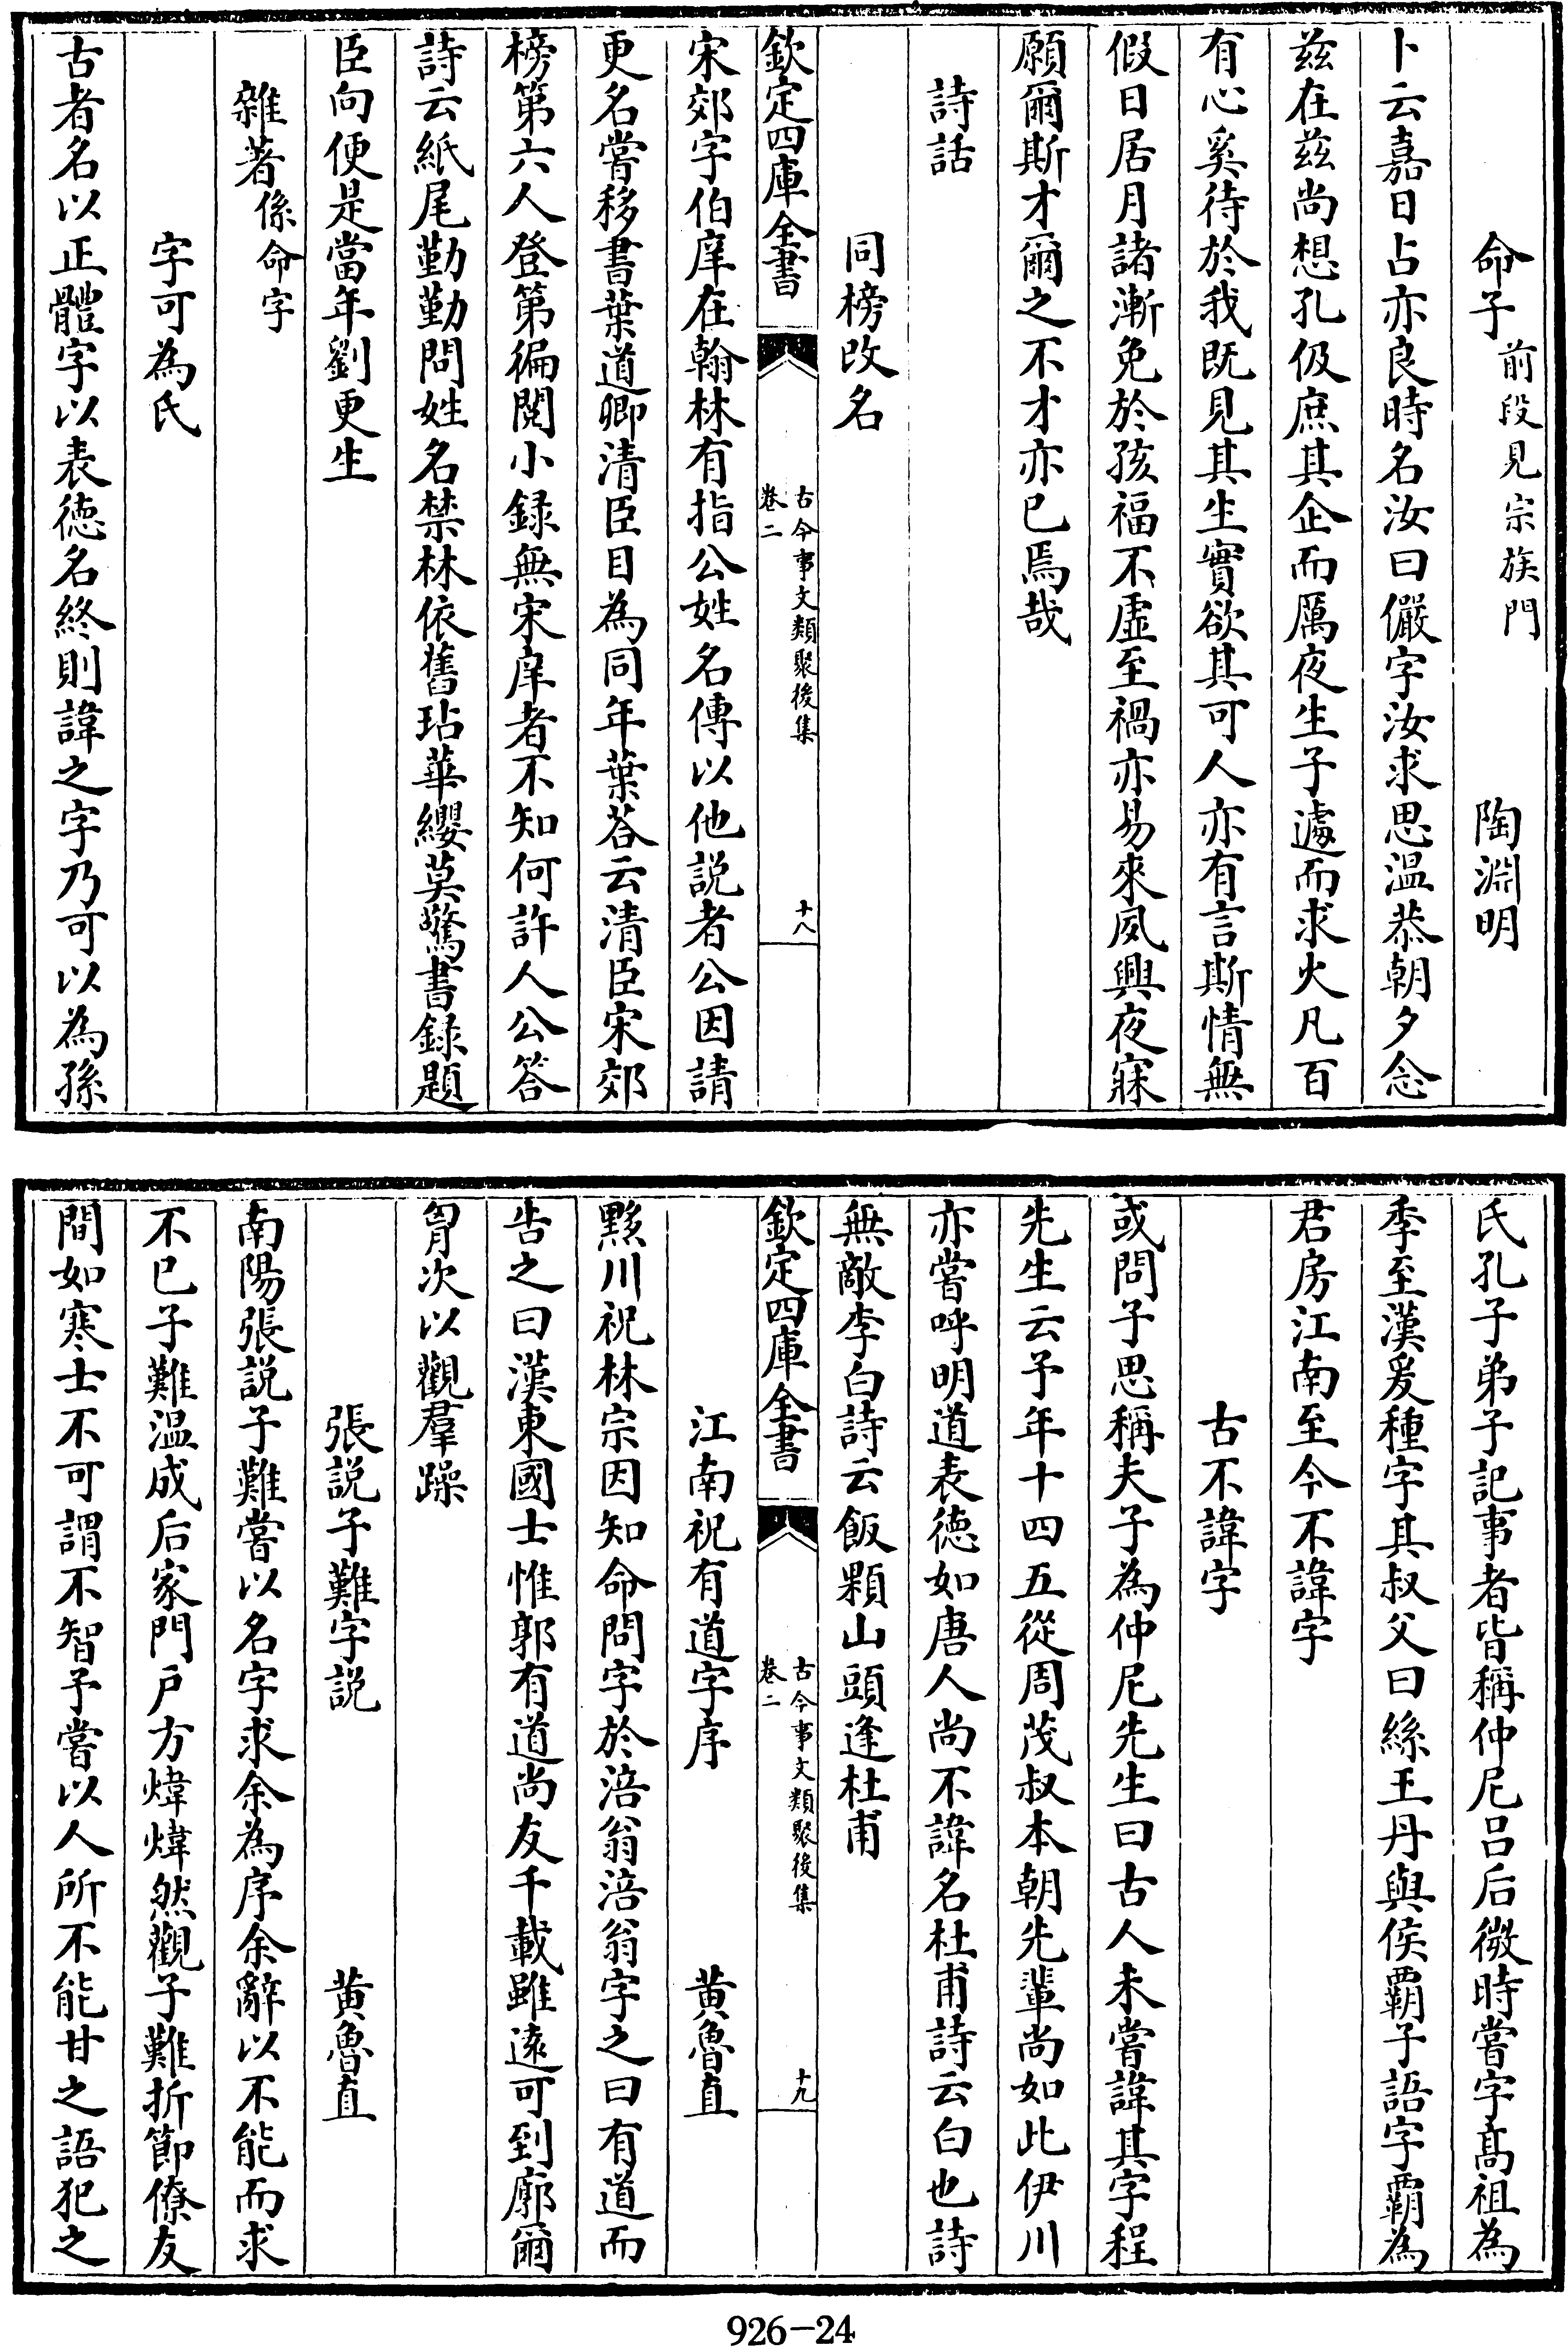 命子前段見宗族門　陶淵明
卜云嘉日占亦良時名汝曰儼字汝求思温恭朝夕念
兹在兹尚想孔伋庶其企而厲夜生子遽而求火凡百
有心奚待於我既見其生實欲其可人亦有言斯情無
假日居月諸漸免於孩福不虛至禍亦易來夙興夜寐
願爾斯才爾之不才亦已焉哉
詩話
同榜改名
欽定四庫全書
古今事文類聚後集
卷二
十八
宋郊字伯庠在翰林有指公姓名傳以他説者公因請
更名嘗移書葉道卿清臣目為同年葉荅云清臣宋郊
榜第六人登第徧閱小録無宋庠者不知何許人公答
詩云紙尾勤勤問姓名禁林依舊玷華纓莫驚書録題
臣向便是當年劉更生
雜著係命字
字可為氏
古者名以正體字以表徳名終則諱之字乃可以為孫
氏孔子弟子記事者皆稱仲尼吕后微時嘗字髙祖為
季至漢爰種字其叔父曰絲王丹與侯霸子語字霸為
君房江南至今不諱字
古不諱字
或問子思稱夫子為仲尼先生曰古人未嘗諱其字程
先生云予年十四五從周茂叔本朝先輩尚如此伊川
亦嘗呼明道表徳如唐人尚不諱名杜甫詩云白也詩
無敵李白詩云飯顆山頭逢杜甫
欽定四庫全書
古今事文類聚後集
卷二
十九
江南祝有道字序　黄魯直
黟川祝林宗因知命問字於涪翁涪翁字之曰有道而
告之曰漢東國士惟郭有道尚友千載雖逺可到廓爾
胷次以觀羣躁
張説子難字説　黄魯直
南陽張説子難嘗以名字求余為序余辭以不能而求
不已子難温成后家門户方煒煒然觀子難折節僚友
間如寒士不可謂不智予嘗以人所不能甘之語犯之
926-24